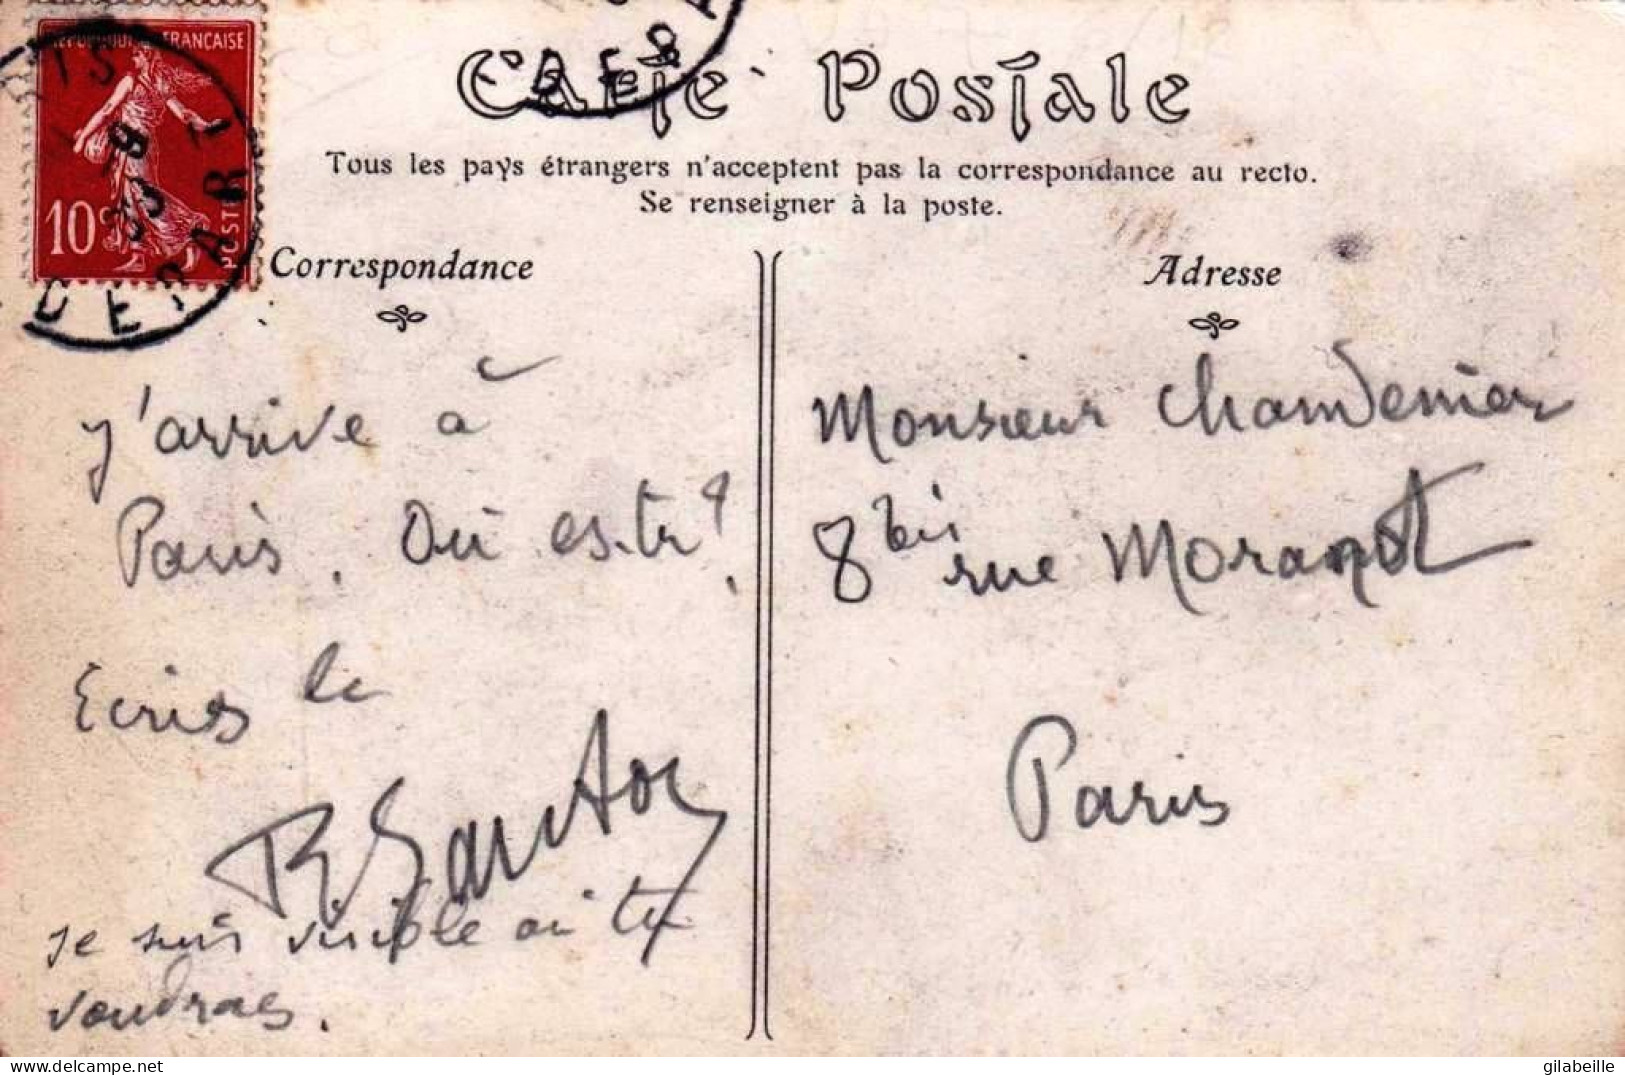 RÉPUBLIQUE FRANÇAISE
10c
POSTES
DEPART
Carte Postale
Tous les pays étrangers n'acceptent pas la correspondance au recto.
Se renseigner à la poste.
Correspondance
J'arrive à
Paris. Où es-tu?
Ecris le
je suis visible où tu
voudras.
Adresse
Monsieur Chandenier
8 bis rue Morand
Paris
gilabeille